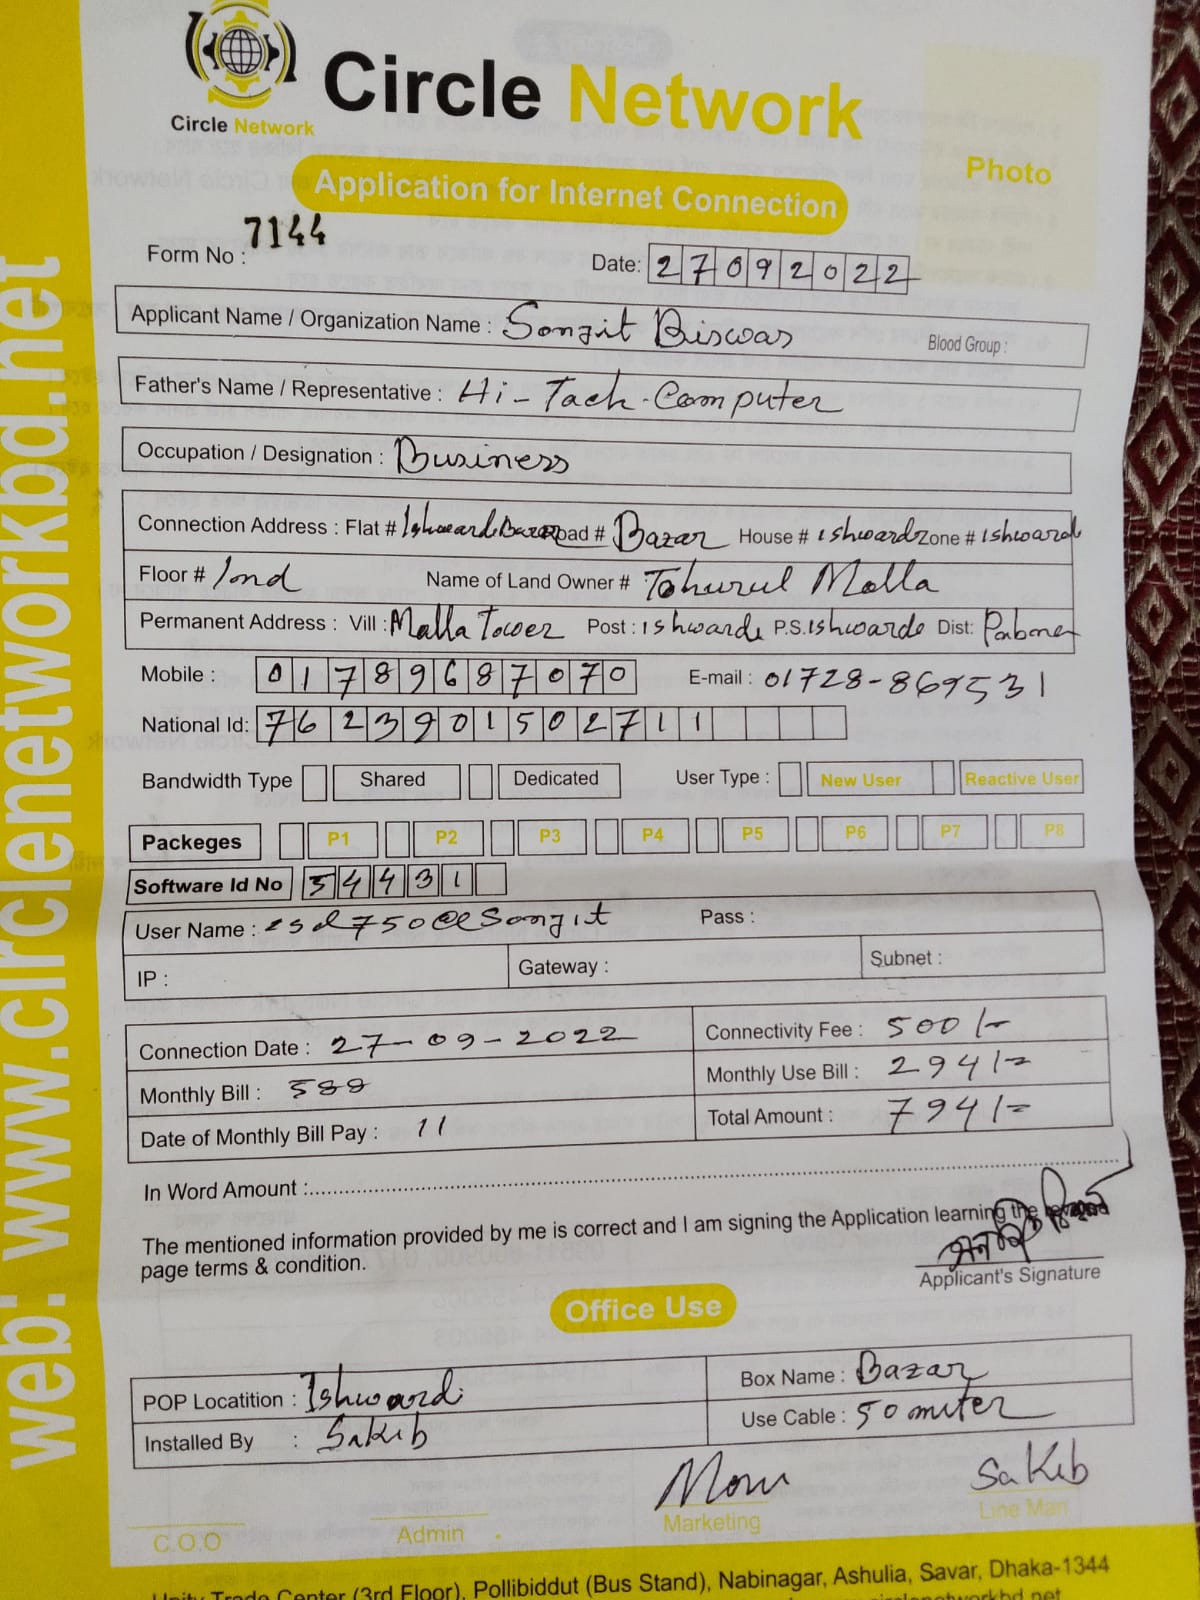 Circle Network
Circle Network
Photo
Application for Internet Connection
Form No : 7144
Date: 27092022
Applicant Name / Organization Name : Songit Biswas Blood Group :
Father's Name / Representative : Hi-Tach-Computer
Occupation / Designation : Business
Connection Address : Flat # Ishwardi Bazar Road # Bazar House # Ishwardi Zone # Ishward
Floor # 2nd Name of Land Owner # Tohurul Molla
Permanent Address : Vill : Malla Tower Post : Ishwarde P.S. Ishwarde Dist: Pabna
Mobile : 01789687070 E-mail : 01728-869531
National Id: 7623901502711
Bandwidth Type Shared Dedicated User Type : New User Reactive User
Packeges P1 P2 P3 P4 P5 P6 P7 P8
Software Id No 54431
User Name : esd750@Songit Pass :
IP : Gateway : Subnet :
Connection Date : 27-09-2022 Connectivity Fee : 500/-
Monthly Bill : 588 Monthly Use Bill : 294/=
Date of Monthly Bill Pay : 11 Total Amount : 794/=
In Word Amount :
The mentioned information provided by me is correct and I am signing the Application learning the
page terms & condition.
Applicant's Signature
Office Use
POP Locatition : Ishwardi Box Name : Bazar
Installed By : Sakib Use Cable : 50 miter
Mom Sakib
C.O.O Admin Marketing Line Man
Unity Trade Center (3rd Floor), Pollibiddut (Bus Stand), Nabinagar, Ashulia, Savar, Dhaka-1344
web: www.circlenetworkbd.net